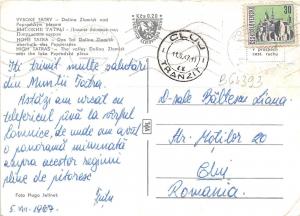 VYSOKÉ TATRY - Dolina Zlomísk nad
Popradským plesom
ВЫСОКИЕ ТАТРЫ -
HOHE TATRA - Das Tal Dolina Zlomísk
oberhalb des Poppersees
HIGH TATRAS - The valley Dolina Zlomísk
over the lake Popradské pleso
Kčs 0,20
CLUJ
TRANZIT
30
Iti trimit multe salutări
din Munții Tatra.
Astăzi am urcat cu
telefericul până la vârful
Lomnice, de unde am avut
o panoramă minunată
asupra acestor regiuni
pline de pitoresc.
Foto Hugo
5.VII.1967
D-șoarei Bălțescu Liana
Str. Moților 20
Cluj
Romania.